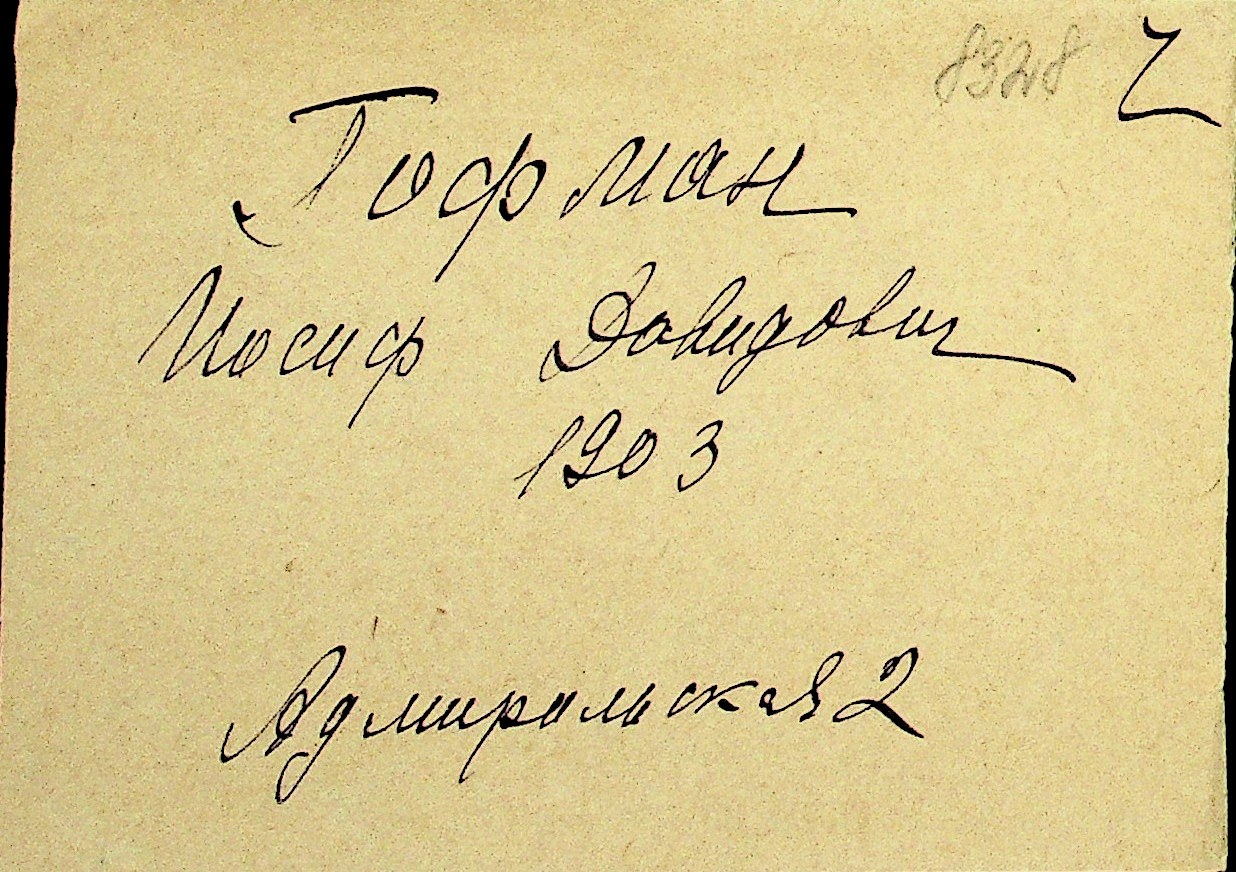 8328
Гофман
Иосиф Давидович
1903
Адмиральская 2